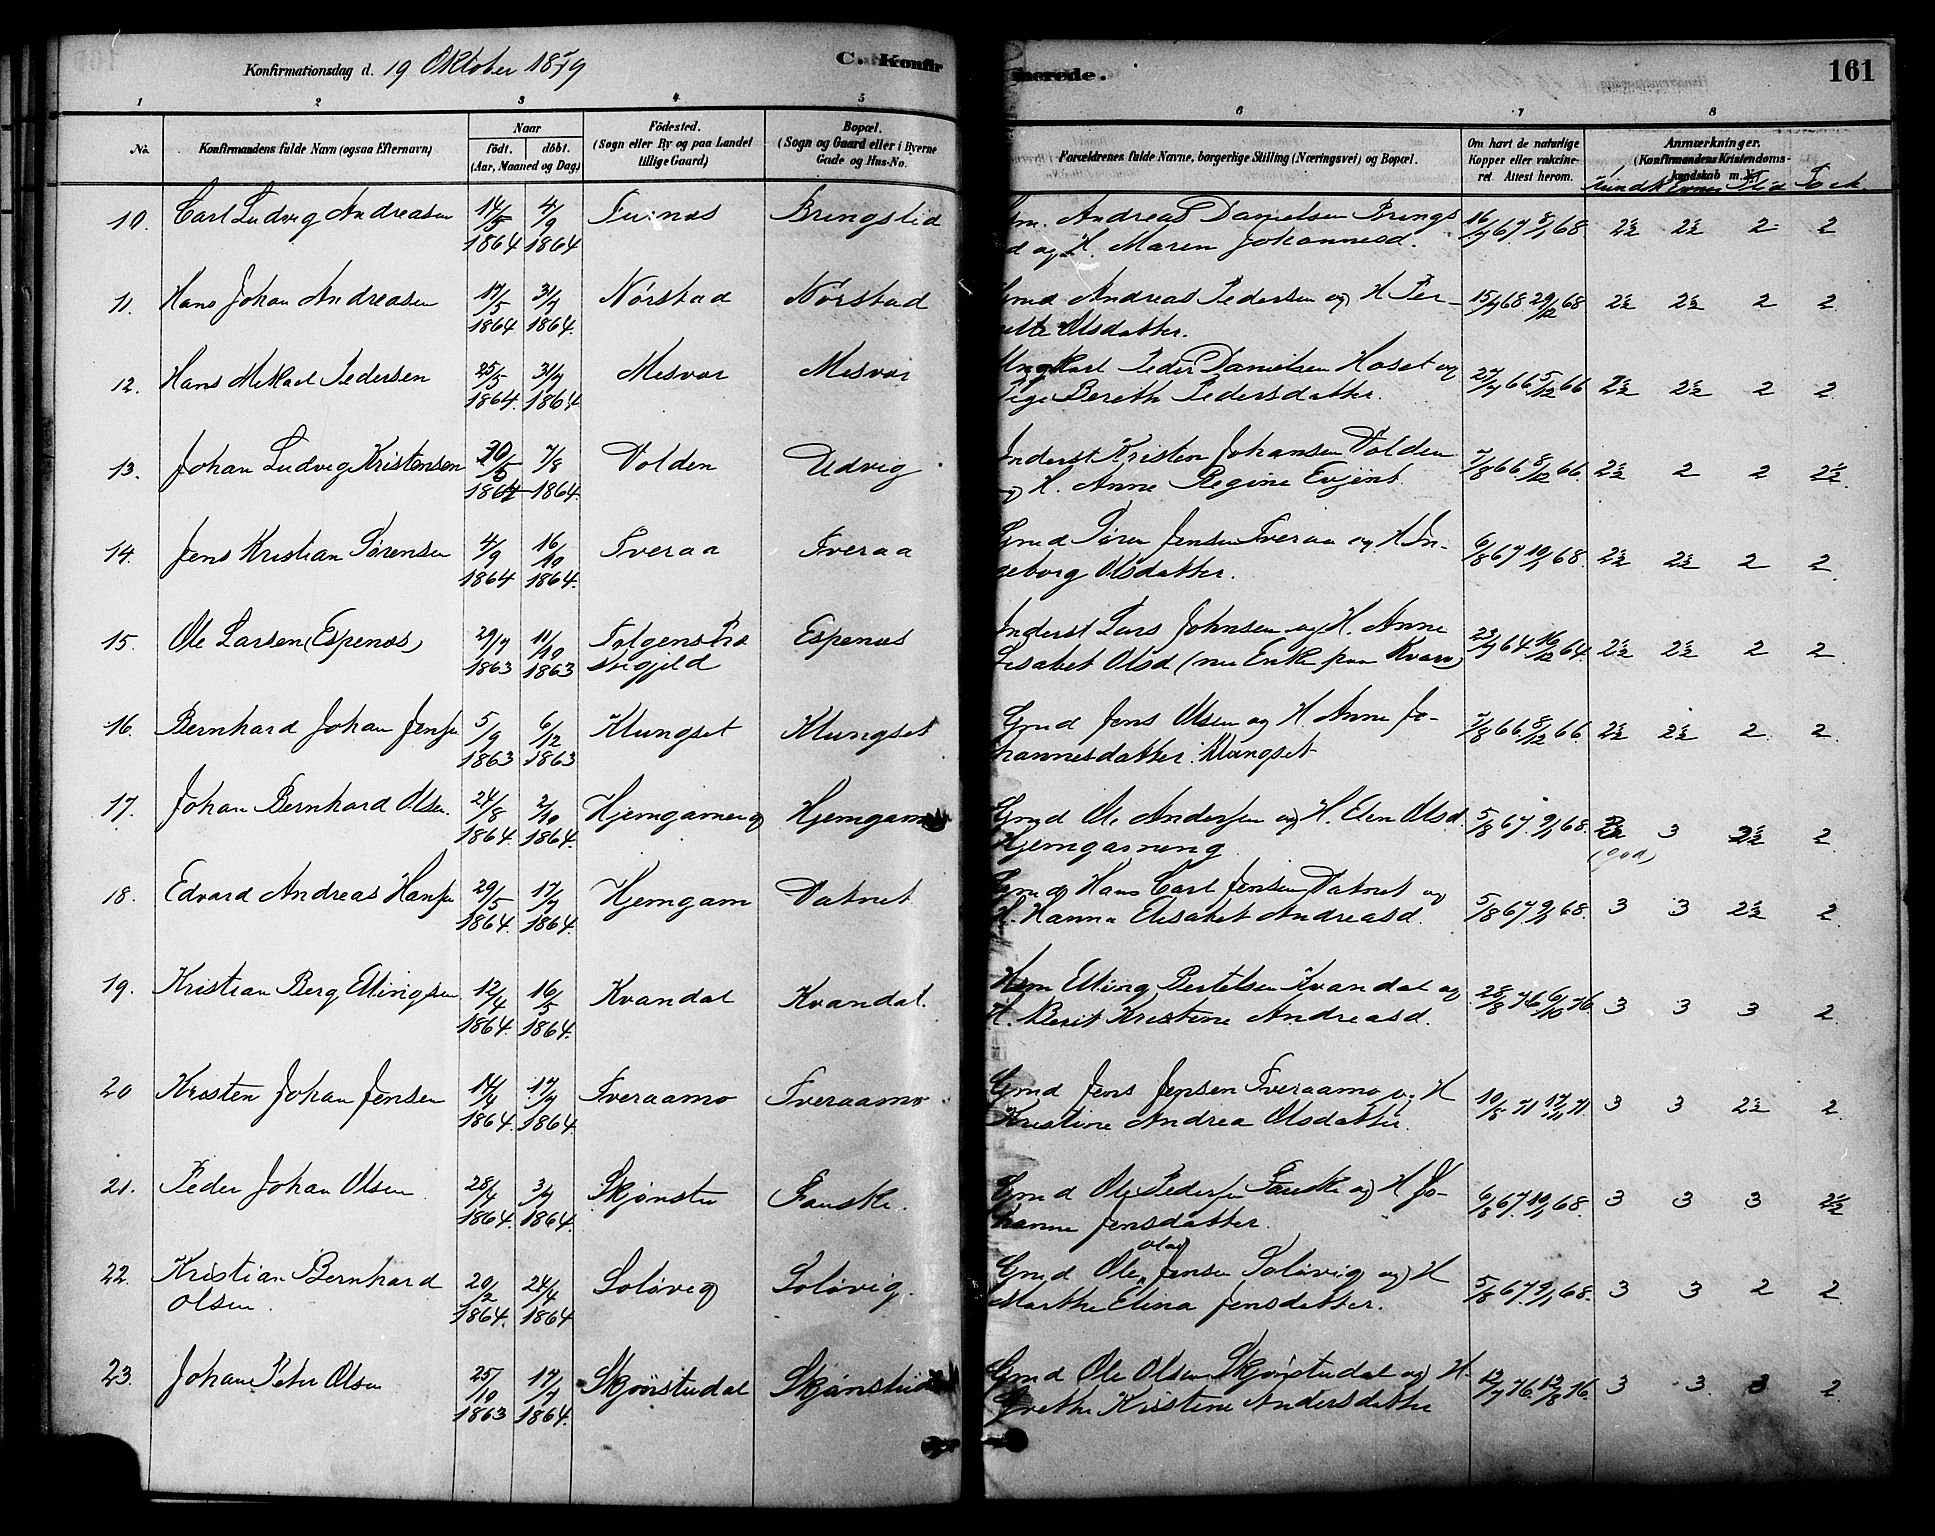 Konfirmationsdag d. 19 Oktober 1879 C. Konfir
merede. 161
1 2 3 4 5 6 7 8
No. Konfirmandens fulde Navn (ogsaa Efternavn) Naar födt. döbt. (Aar, Maaned og Dag) Födested. (Sogn eller By og paa Landet tillige Gaard) Bopæl. (Sogn og Gaard eller i Byerne Gade og Hus-No. Forældrenes fulde Navne, borgerlige Stilling (Næringsvei) og Bopæl. Om havt de naturlige Kopper eller vakcineret. Attest herom. Anmærkninger. (Konfirmandens Kristendomskundskab m. V.)
Kundsk Evner Flid
10. Carl Ludvig Andreasen 14/5 1864 4/9 1864 Bringslid Andreas Danielsen Brings
og H. Maren Johannesd. 16/9 67 8/1 68 2½ 2½ 2 2
11. Hans Johan Andreasen 17/5 1864 31/7 1864. Nörstad Nörstad Gmd Andreas Pedersen og H Per-
Olsdatter. 15/9 68 29/12 68 2½ 2½ 2 2
12. Hans Mikael Pedersen 25/5 1864. 31/7 1864 Misvær Misvær Ungkarl Peder Danielsen Hoset og
Pige Berethe Pedersdatter. 27/7 66 5/12 66 2½ 2½ 2 2
13. Johan Ludvig Kristensen 30/5 1864 7/8 1864. Volden Udvig Inderst Kristen Johansen Volden
og H. Anne Regine Evjent. 7/8 66 8/12 66. 2½ 2 2 2½
14. Jens Kristian Sørensen 4/9 1864 16/10 1864. Tveraa Tveraa Gmd Søren Jensen Tveraa og H In-
geborg Olsdatter. 6/8 67 10/1 68. 2½ 2½ 2 2
15. Ole Larsen (Espenæs) 29/7 1863 11/10 1863 Folgens Præ
stegjeld Espenæs Inderst Lars Johnsen og H. Anne
Lisabet Olsd (nu Enke paa Kvæn) 23/7 64 16/12 64. 2½ 2½ 2 2
16. Bernhard Johan Jensen 5/9 1863 6/12 1863 Klungset Klungset Gmd Jens Olsen og H Anne Jo-
hannesdatter Klungset 7/8 66 8/12 66. 2½ 2½ 2 2
17. Johan Bernhard Olsen. 24/8 1864. 2/10 1864. Hjemgam Gmd Ole Andersen og H. Elen Olsd.
5/8 67. 9/1 68. (god) 3 2½ 2
18. Edvard Andreas Hansen 29/5 1864. 17/7 1864. Hjemgam Vatnet Gmd Hans Carl Jensen Vatnet og
H. Hanna Elisabet Andreasd. 5/8 67. 9/1 68. 3 3 2½ 2
19. Kristian Berg Ellingsen 12/4 1864. 16/5 1864. Kvandal Kvandal. Elling Bertelsen Kvandal og
H. Berit Kristine Andreasd. 28/8 76 6/10 76 3 3 3 2
20 Kristen Johan Jensen 14/4 1864. 17/7 1864. Tveraamo Tveraamo Gmd Jens Jensen Tveraamo og H
Kristine Andrea Olsdatter. 10/8 71 17/11 71. 3 3 2½ 2
21. Peder Johan Olsen 28/4 1864. 3/7 1864. Skjönstu Fauske. Gmd Ole Pedersen Fauske og H Jo-
hanna Jensdatter. 6/8 67. 10/1 68. 3 3 3 2½
22. Kristian Bernhard
Olsen. 20/2 1864. 24/4 1864 Solövig Solövig. Gmd Ole Olai Jensen Solövig og H
Marthe Elina Jensdatter. 5/8 67. 9/1 68. 3 3 2 2
23. Johan Peter Olsen 25/10 1863 17/7 1864. Skjönstudal Gmd Ole Olsen Skjönstudal og H.
Grethe Kristine Andersdatter 12/7 76. 12/8 76. 3 3 3 2